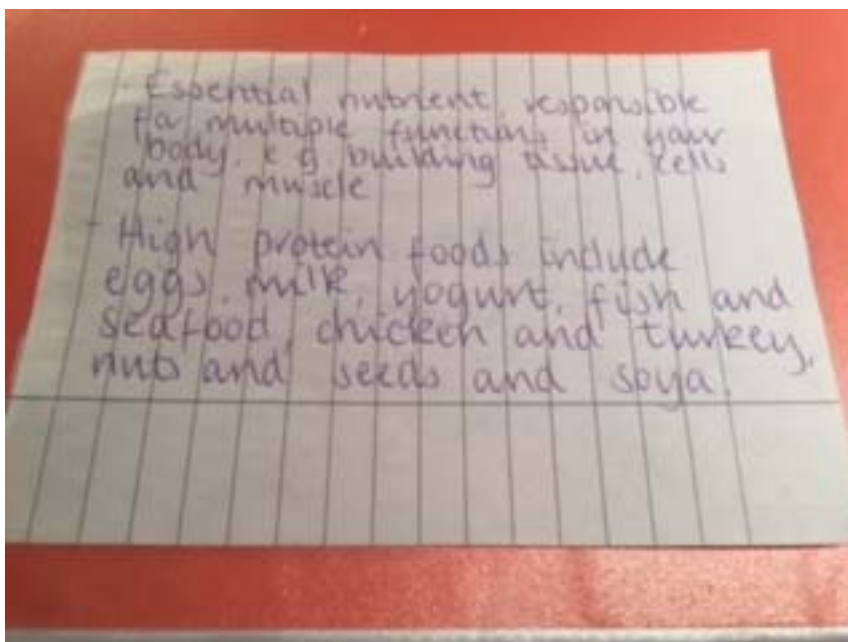 - Essential nutrient responsible
for multiple functions in your
body, e.g. building tissue, cells
and muscle
- High protein foods include
eggs, milk, yogurt, fish and
seafood, chicken and turkey,
nuts and seeds and soya.